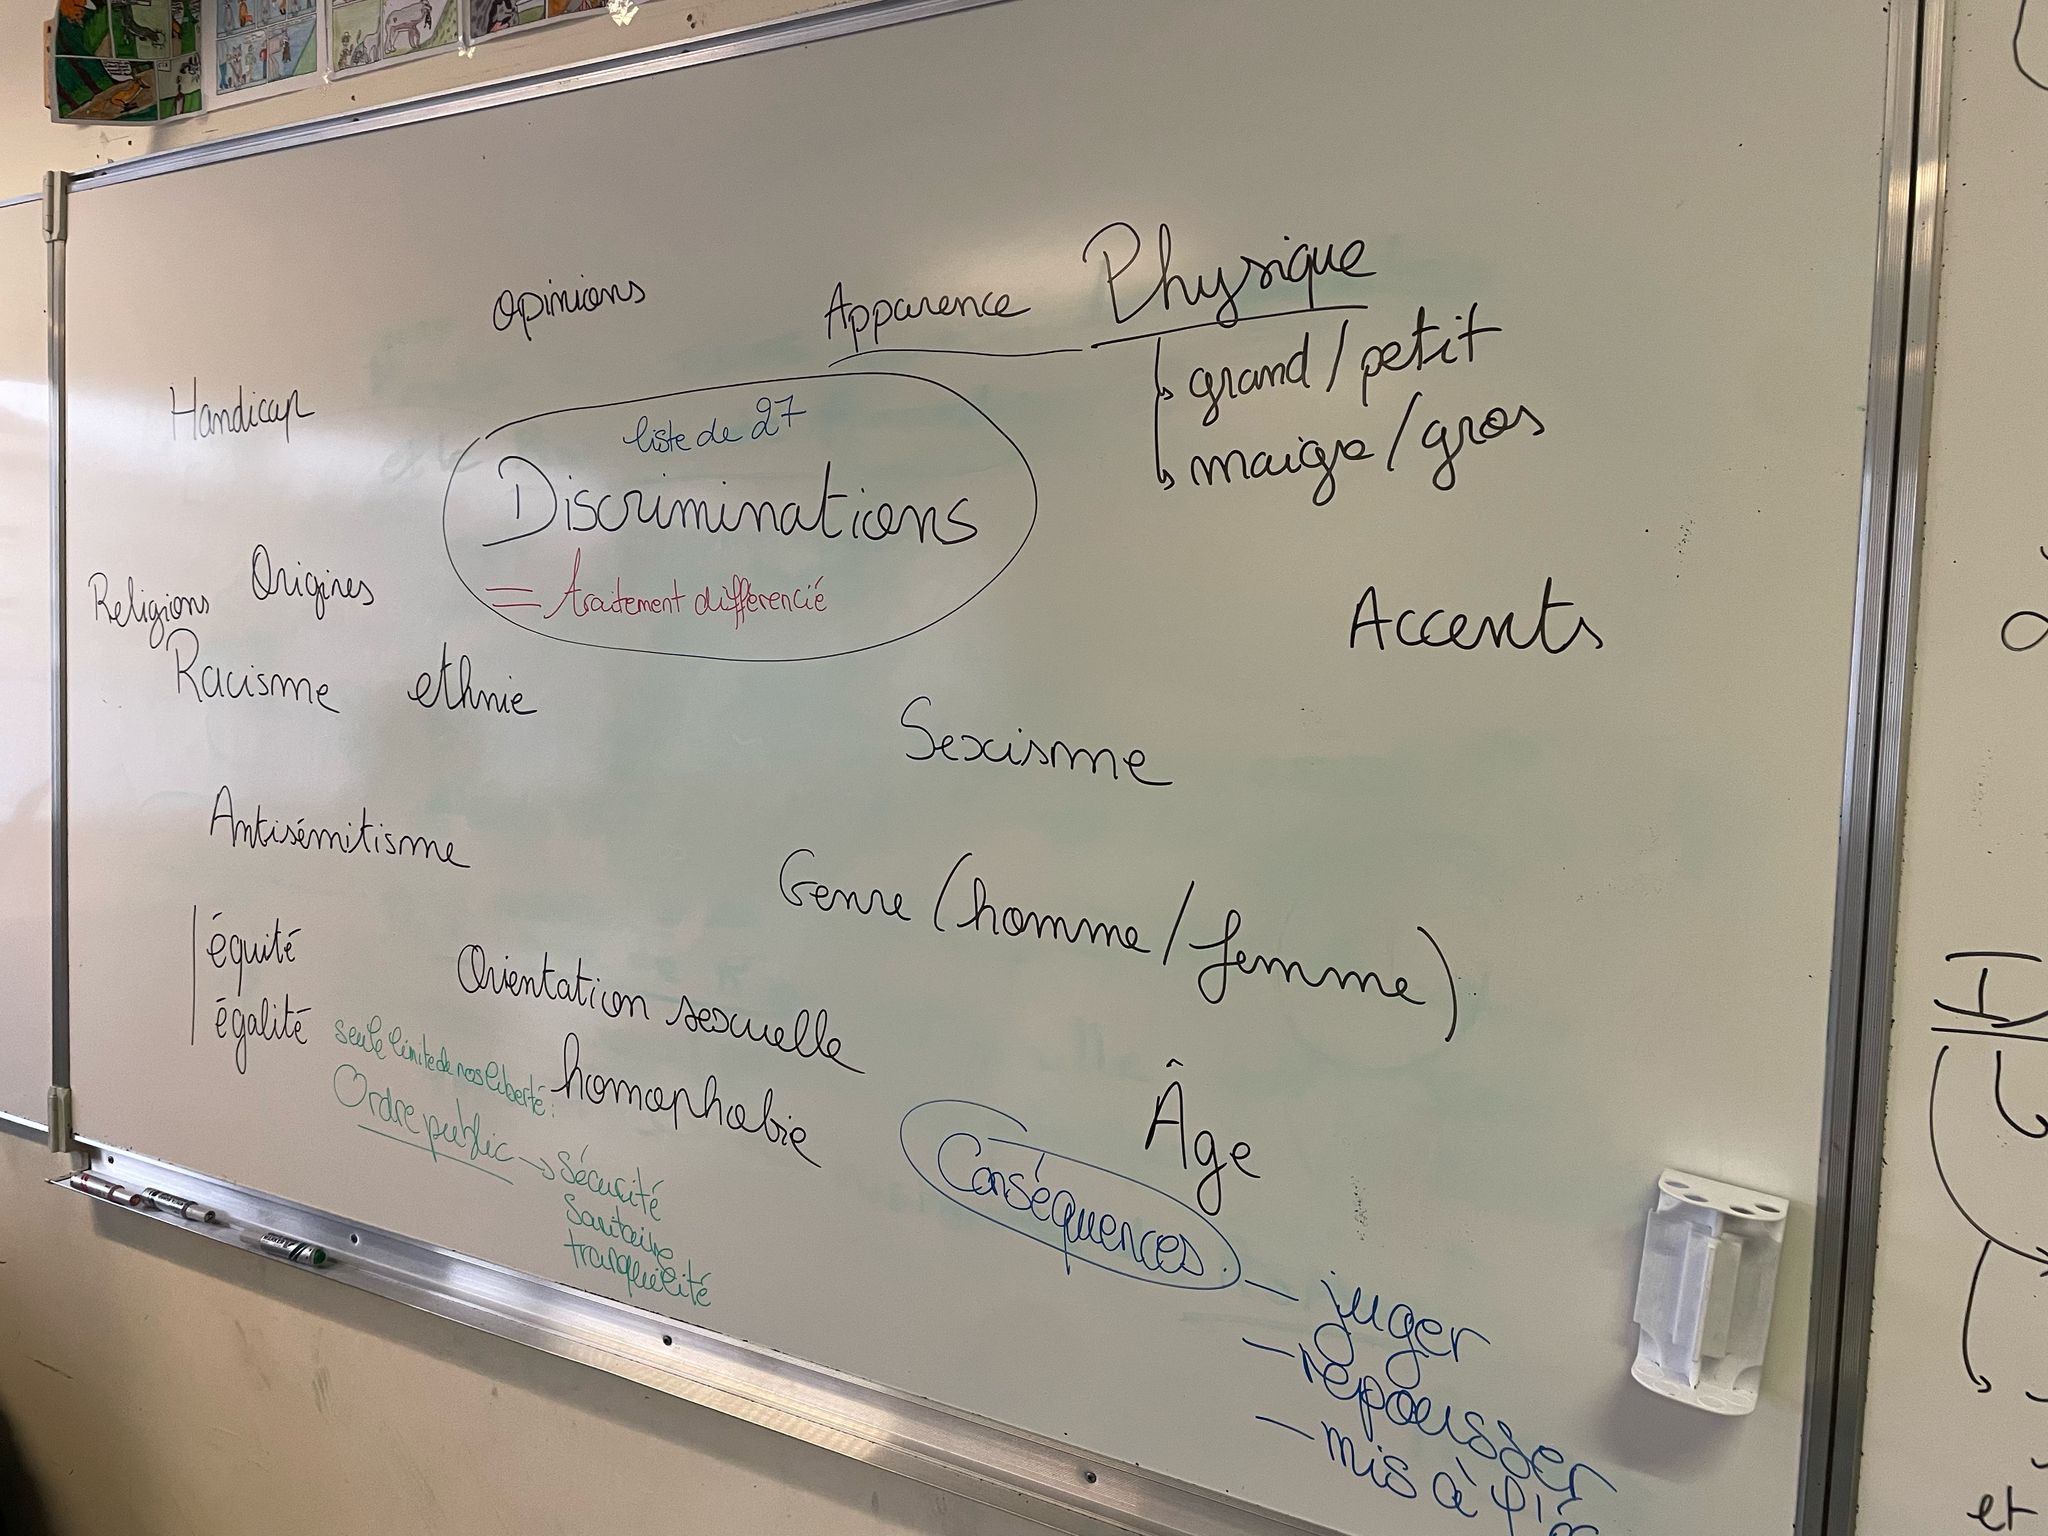 Opinions
Apparence Physique
grand/petit
maigre/gros
Handicap
liste de 27
Discriminations
= traitement différencié
Accents
Religions Origines
Racisme ethnie
Sexisme
Antisémitisme
Genre (homme/femme)
équité
égalité
Orientation sexuelle
homophobie
seule limite de nos liberté :
Ordre public → sécurité
Sanitaire
tranquilité
Âge
Conséquences
- juger
- repousser
- mis à
et